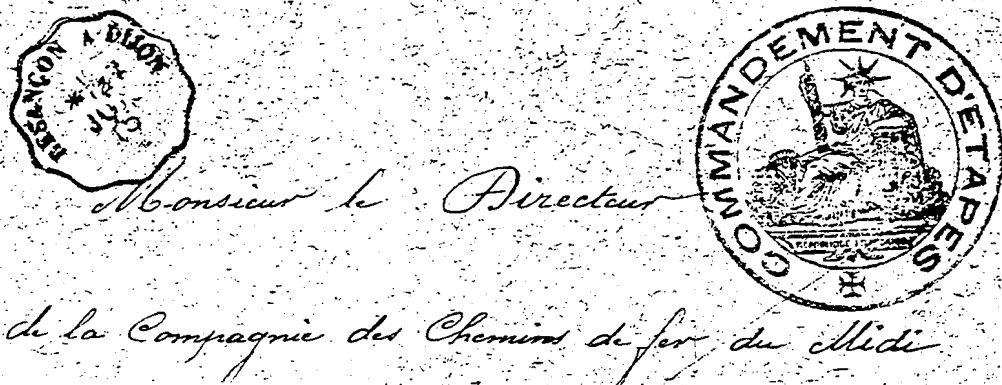 BESANÇON A DIJON
COMMANDEMENT D'ETAPES
Monsieur le Directeur
de la Compagnie des Chemins de fer du Midi